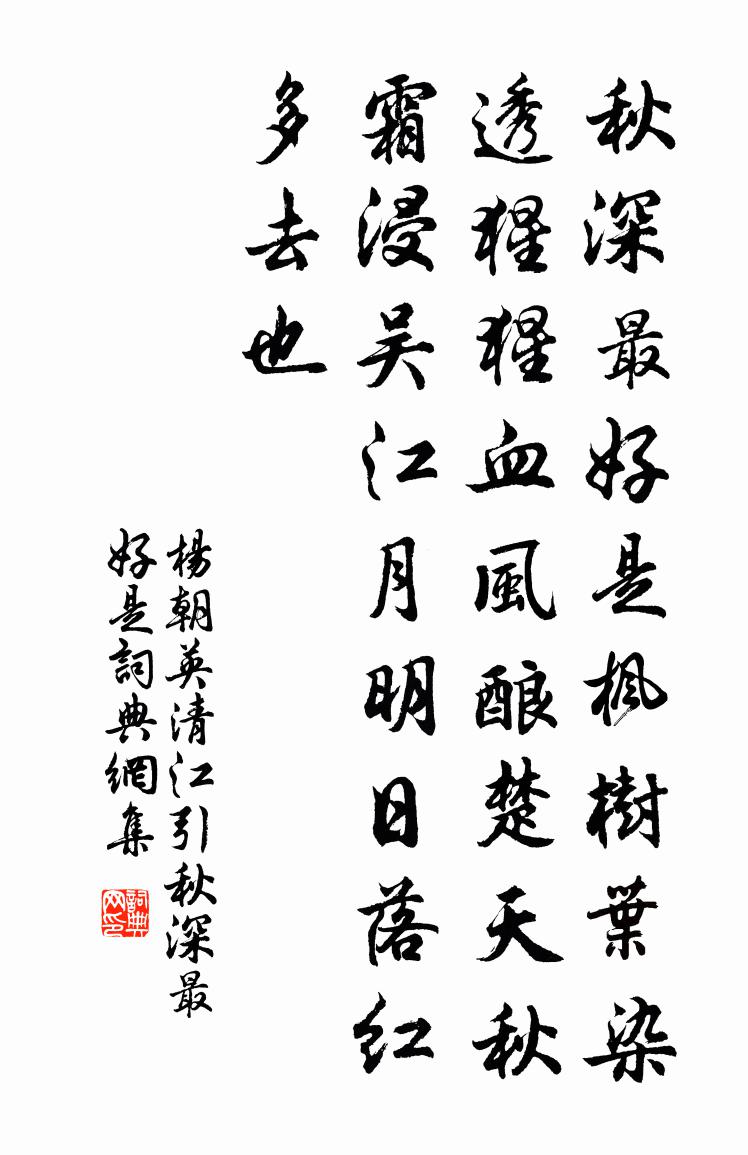 秋深最好是楓樹葉染
透猩猩血風酿楚天秋
霜浸吴江月明日落红
多去也
楊朝英清江引秋深最
好是詞典網集
詞典
网印